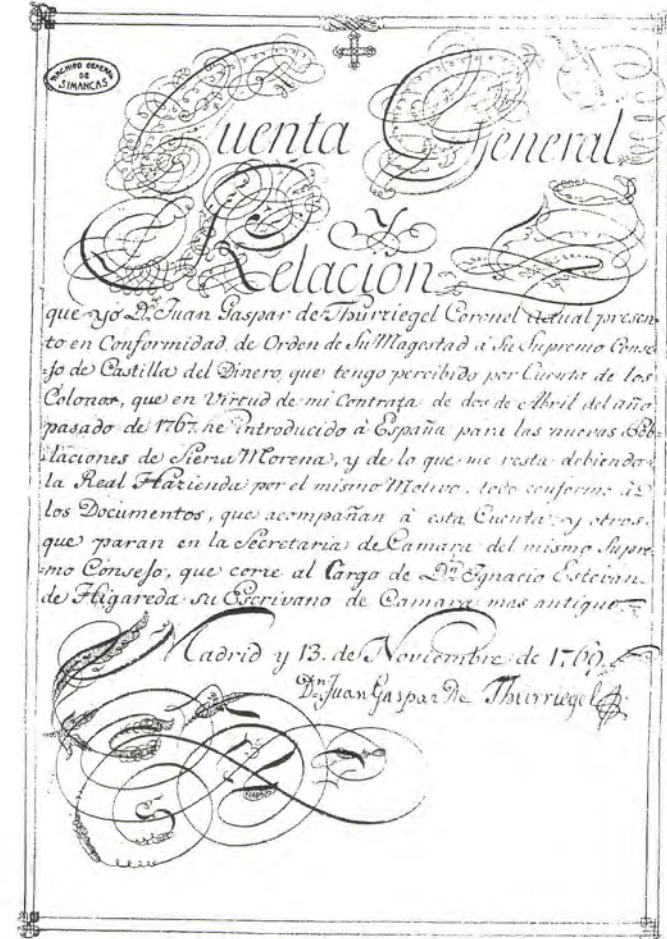 ARCHIVO GENERAL
DE
SIMANCAS
Cuenta General
Y
Relacion
que yo Dn. Juan Gaspar de Thürriegel Coronel actual presen-
to en Conformidad de Orden de Su Magestad à Su Supremo Conse-
=jo de Castilla del Dinero, que tengo percibido por Cuenta de los
Colonos, que en Virtud de mi Contrata de dos de Abril del año
pasado de 1767. he introducido à España para las nuevas Pob-
laciones de Sierra Morena, y de lo que me resta debiendo
la Real Hazienda por el mismo Motivo, todo conforme à
los Documentos, que acompañan à esta Cuenta, y otros,
que paran en la Secretaria de Camara del mismo Supre-
=mo Consejo, que corre al Cargo de Dn. Ignacio Estevan
de Higareda su Escrivano de Camara mas antiguo.=
Madrid y 13. de Noviembre de 1769.
Dn. Juan Gaspar De Thürriegel